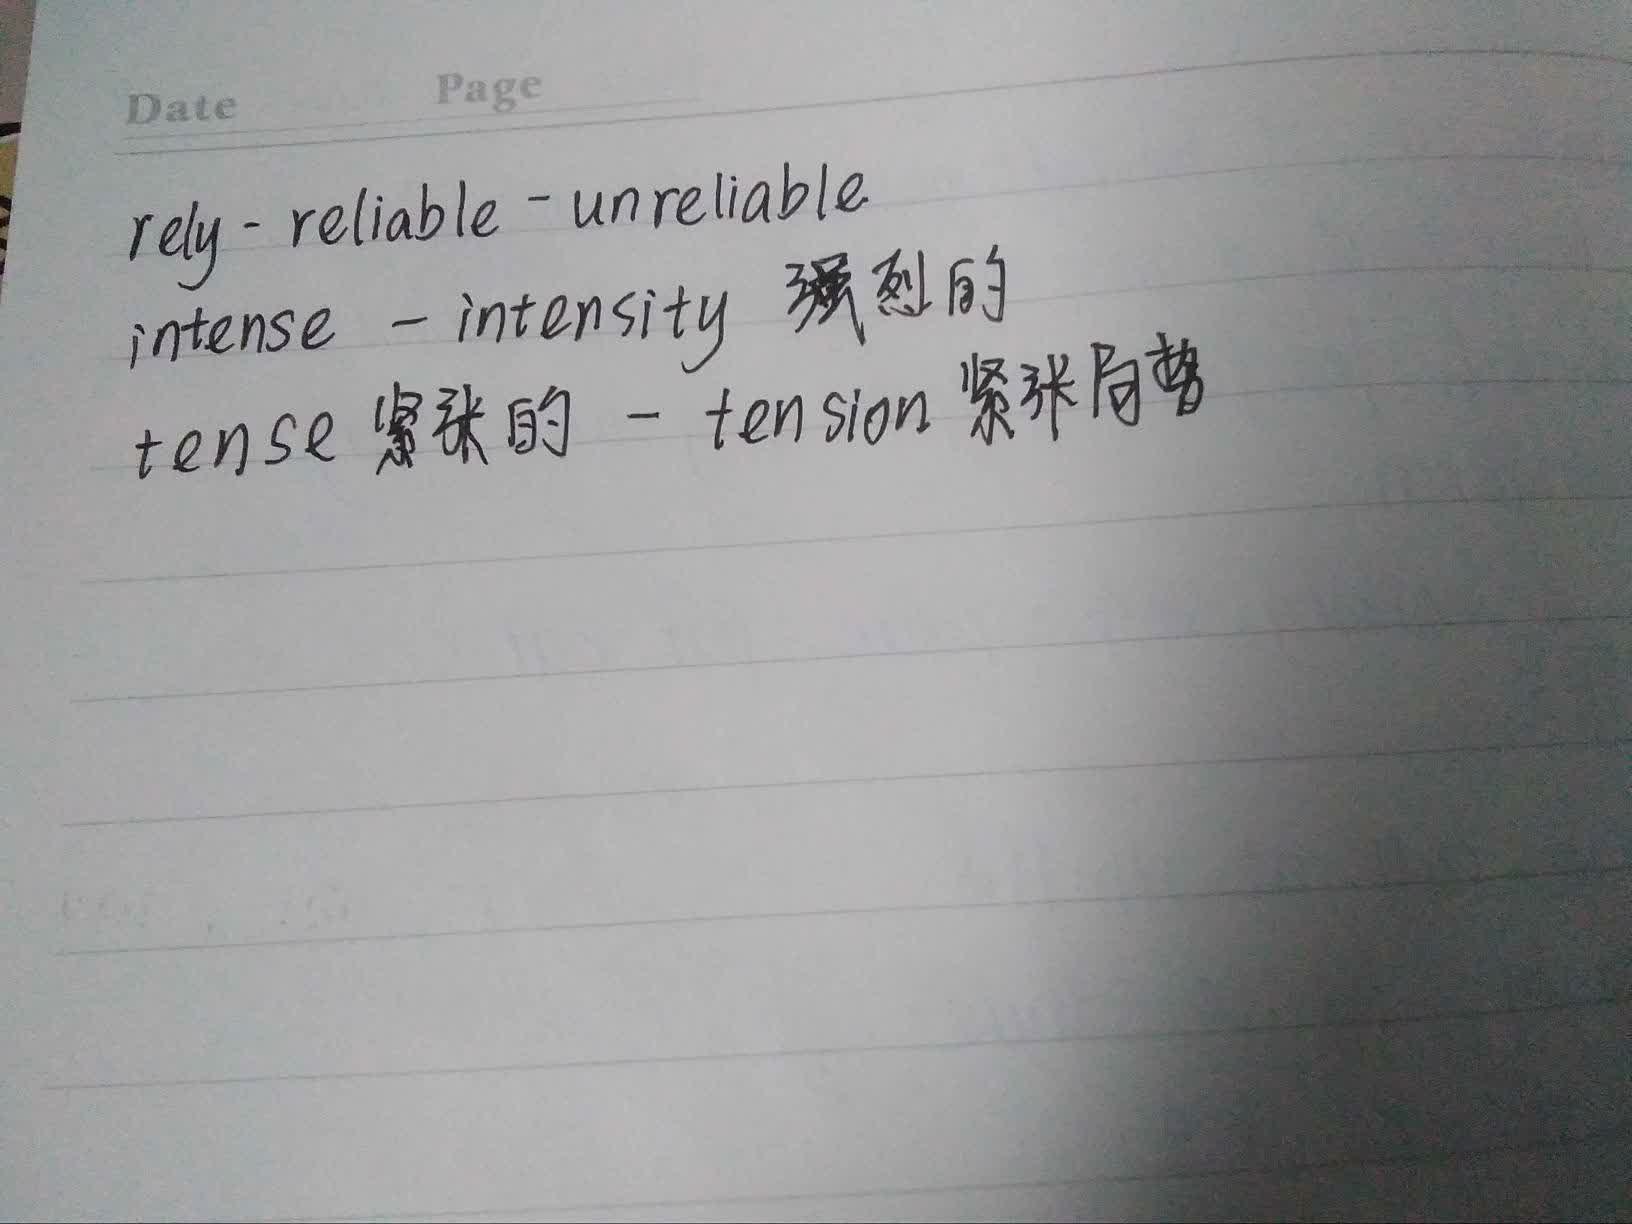 Date Page
rely - reliable - unreliable
intense - intensity 强烈的
tense 紧张的 - tension 紧张局势